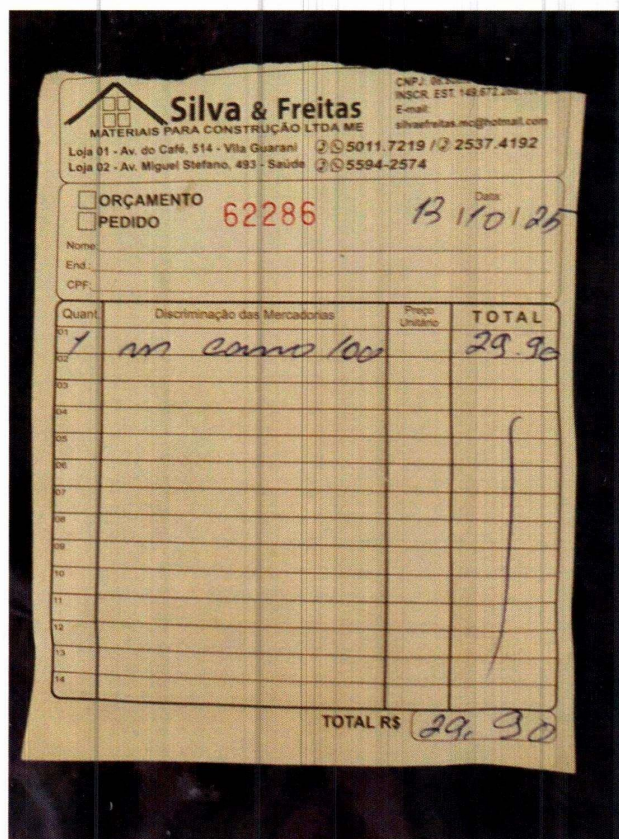 Silva & Freitas
MATERIAIS PARA CONSTRUÇÃO LTDA ME
CNPJ:
INSCR. EST. 149.672.260
E-mail:
silvaefreitas.mc@hotmail.com
Loja 01 - Av. do Café, 514 - Vila Guarani 5011.7219 / 2537.4192
Loja 02 - Av. Miguel Stefano, 493 - Saúde 5594-2574
ORÇAMENTO
PEDIDO
62286
Data
13 / 10 / 25
Nome:
End.:
CPF:
Quant. Discriminação das Mercadorias Preço Unitário TOTAL
01 1 m cano 100 29.90
02
03
04
05
06
07
08
09
10
11
12
13
14
TOTAL R$ 29.90